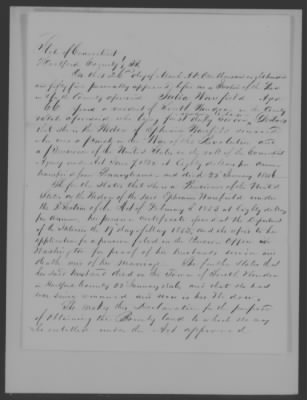 State of Connecticut
Hartford County } SS.
On this 26th day of March A.D. One thousand eight hundred
and fifty five personally appeared before me a Justice of the Peace
in & for the County aforesaid Julia Warfield Aged
66 years a resident of South Windsor in the County
and State aforesaid who being first duly sworn Declares
that she is the Widow of Ephraim Warfield deceased
who was a private in the War of the Revolution and
a Pensioner of the United States on the roll of the Connecticut
Agency under Act June 7 1832 at Eighty dollars per annum
transferred from Pennsylvania and died 22 January 1846
She further States that she is a Pensioner of the United
States as the Widow of the said Ephraim Warfield under
the 2d Section of the Act of February 3 1853 at Eighty dollars
per annum her pension certificate issued at the Department
of the Interior the 19 day of May 1853, and she refers to her
application for a pension filed in the Pension Office in
Washington for proof of her husbands service and
death and of her Marriage. She further States that
her said husband died in the Town of South Windsor
in Hartford County 22 January 1846 and that she has
not since married and now is his Widow.
She makes this Declaration for the purpose
of obtaining the Bounty land to which she may
be entitled under the Act approved